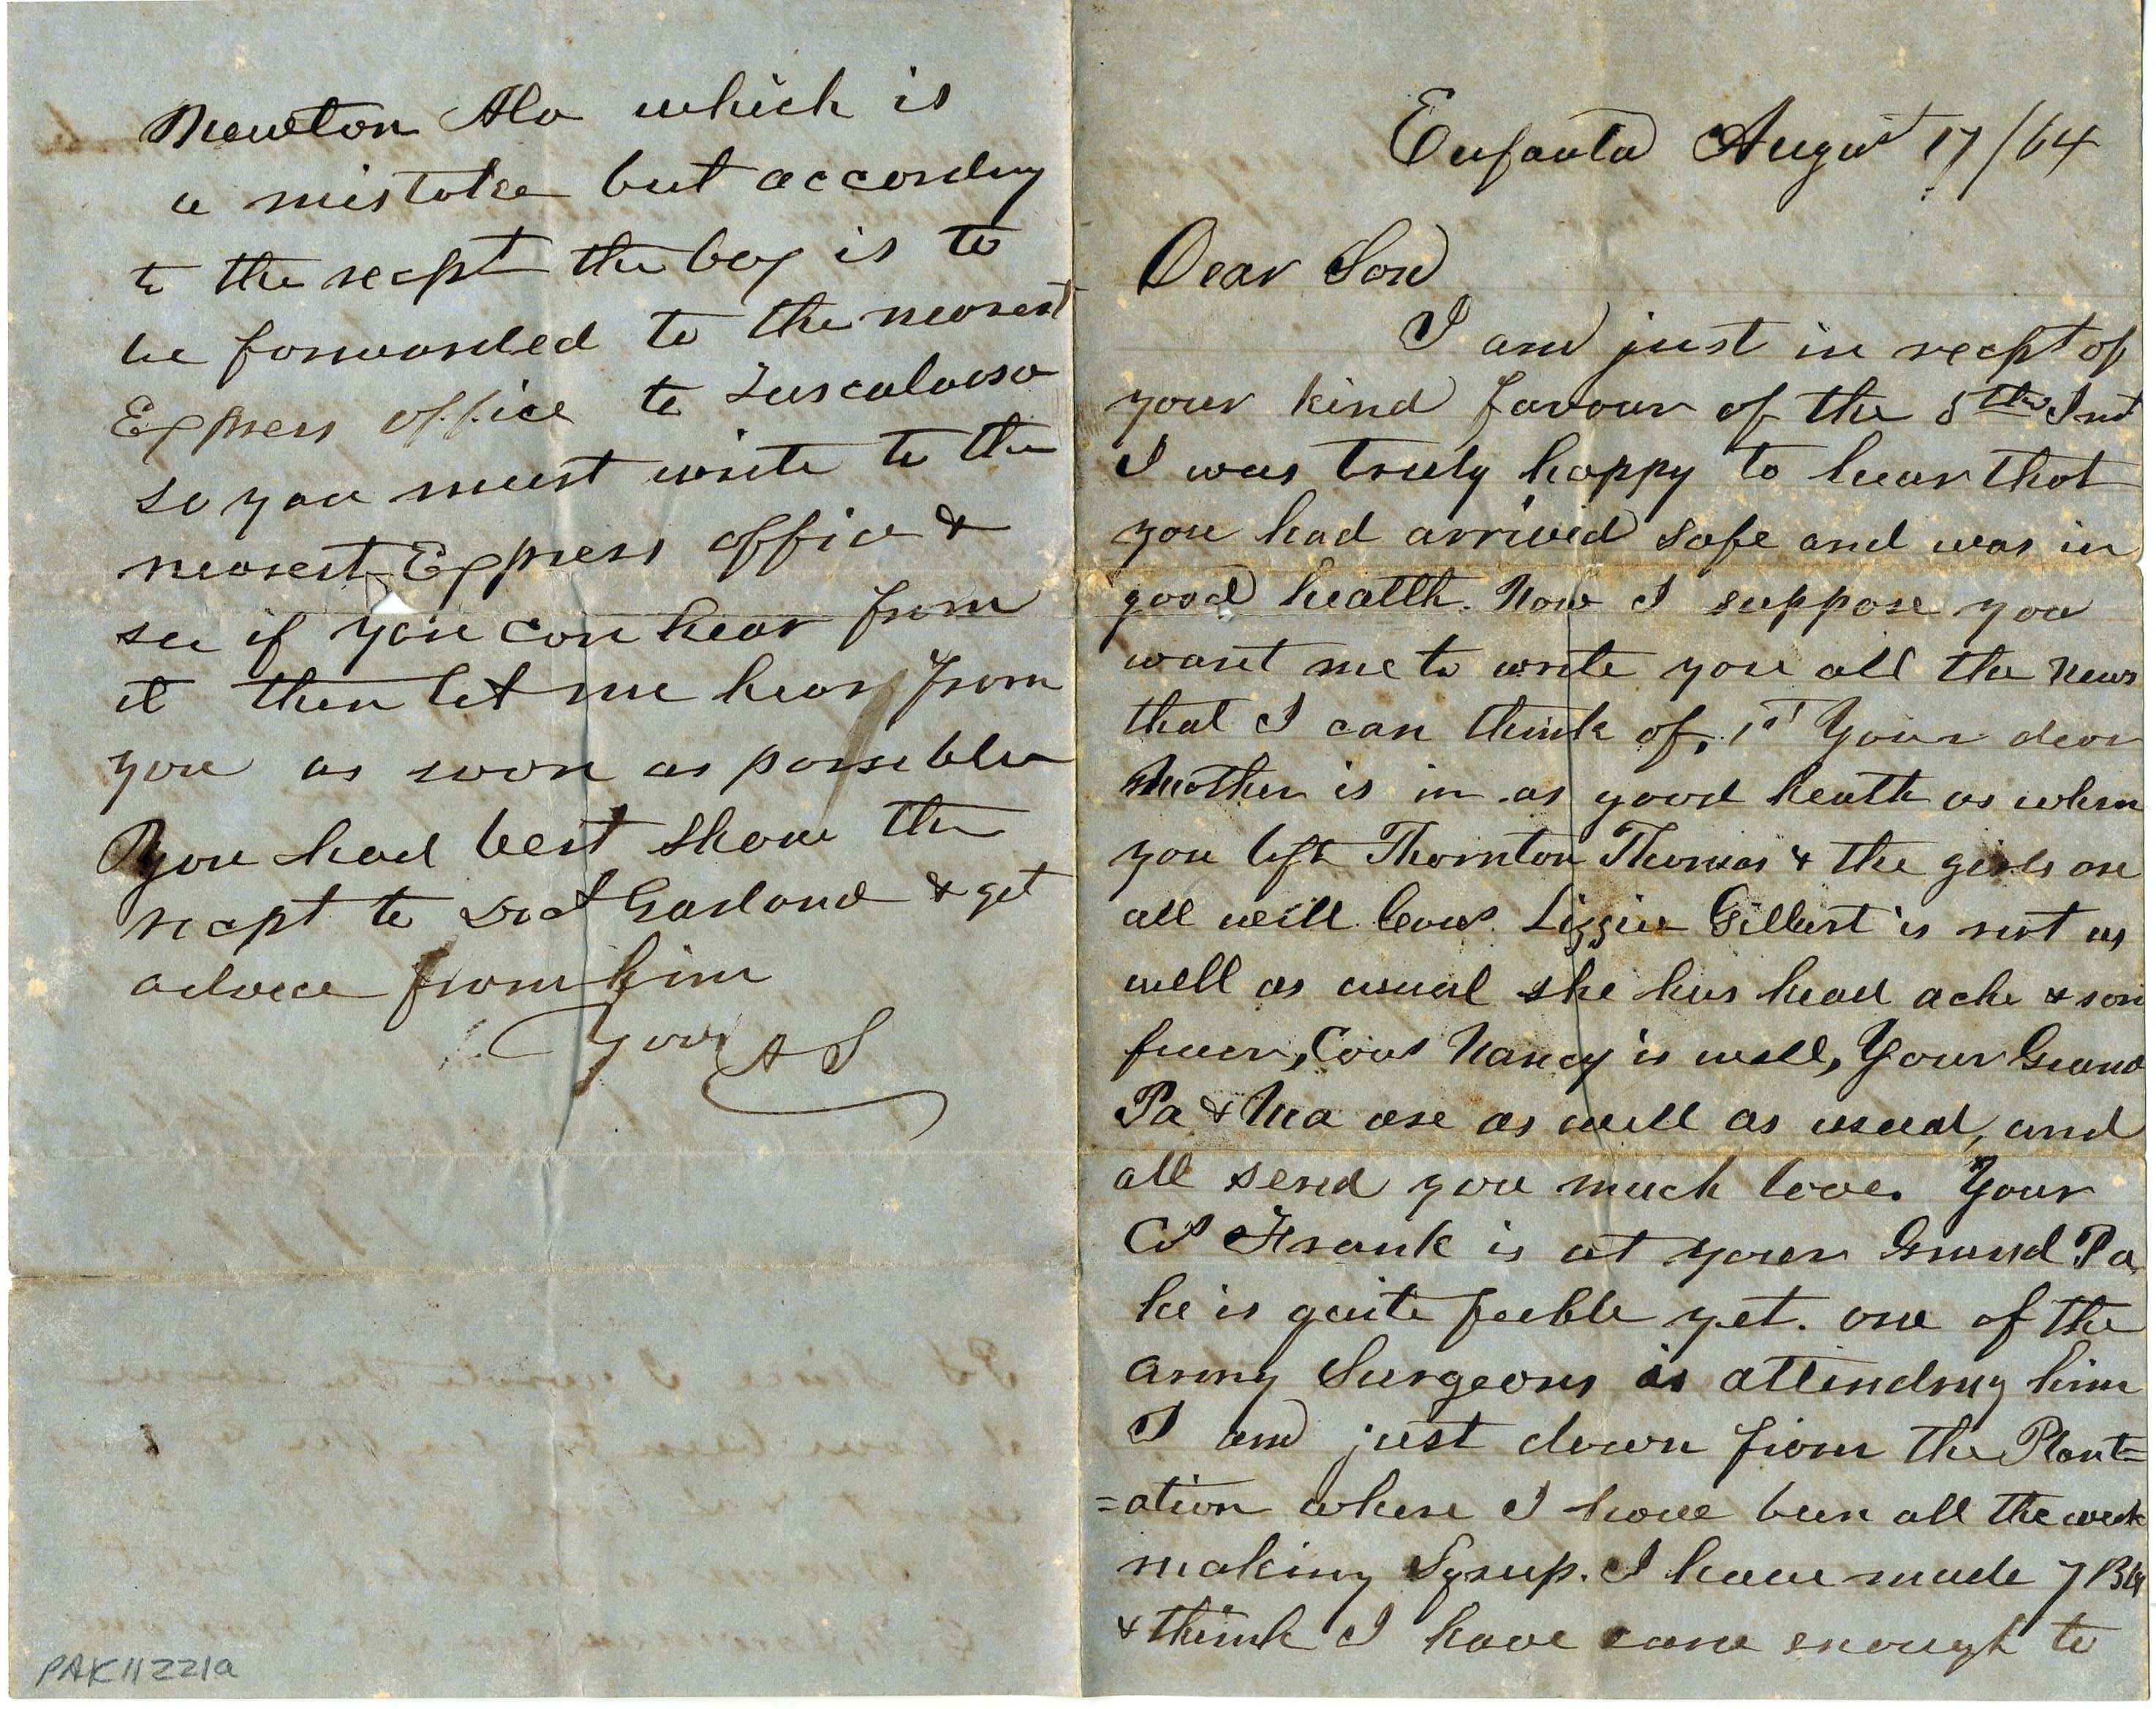 Eufaula August 17/64
Dear Son
I am just in recpt of
your kind favour of the 8th Inst
I was truly happy to hear that
you had arrived safe and was in
good health. Now I suppose you
want me to write you all the news
that I can think of, 1st Your dear
Mother is in as good health as when
you left Thornton Thomas & the girls are
all well Cous. Lizzie Gilbert is not as
well as usual she has head ache & som
fever, Cous Nancy is well, Your Grand
Pa & Ma are as well as usual, and
all send you much love. Your
Cs Frank is at your Grand Pa
he is quite feeble yet. one of the
army Surgeons is attending him
I am just down from the Plant=
=ation where I have been all the week
making Syrup. I have made 7 Bbls
& think I have cane enough to
Newton Ala which is
a mistake but according
to the recpt the box is to
be forwarded to the nearest
Express office to Tuscaloosa
so you must write to the
nearest Express office &
see if you can hear from
it then let me hear from
you as soon as possible
You had best show the
recpt to Doct Garland & get
advice from him
Your A S
PAK11221a